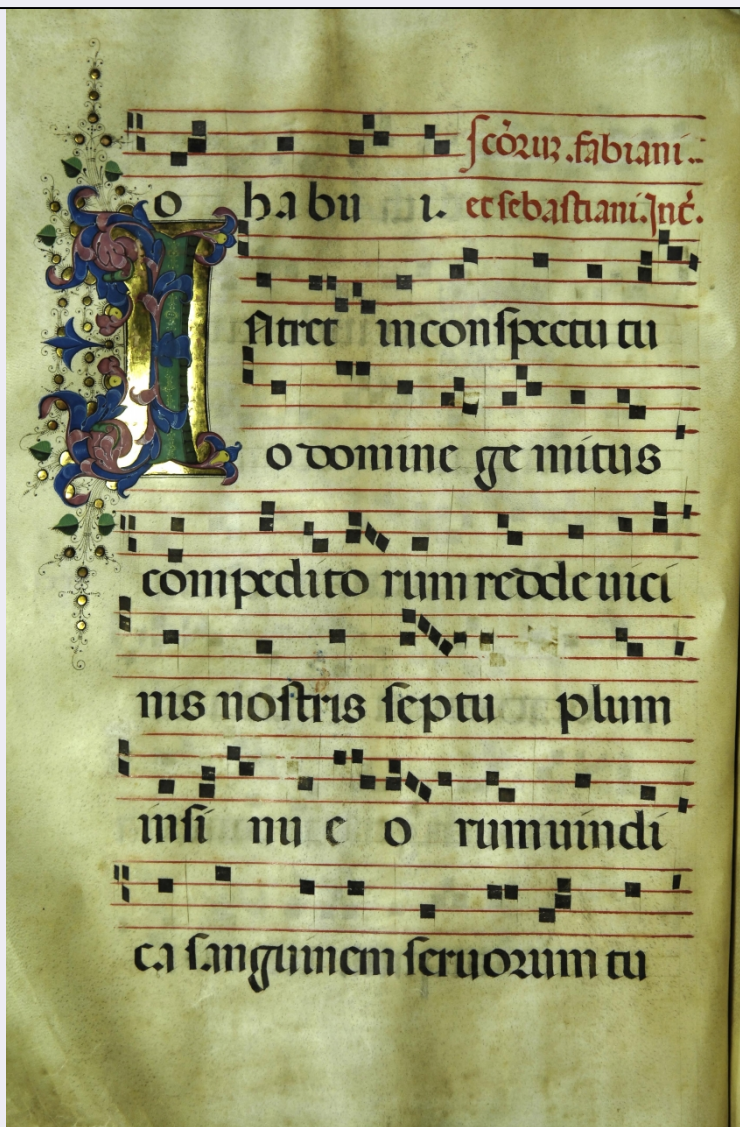 o habu i. sco̅rur. fabiani.
et sebastiani. Int̅.
I Ntret in conspectu tu
o domine ge mitus
compedito rum redde uici
nis nostris septu plum
insi nu e o rum uindi
ca sanguinem seruorum tu